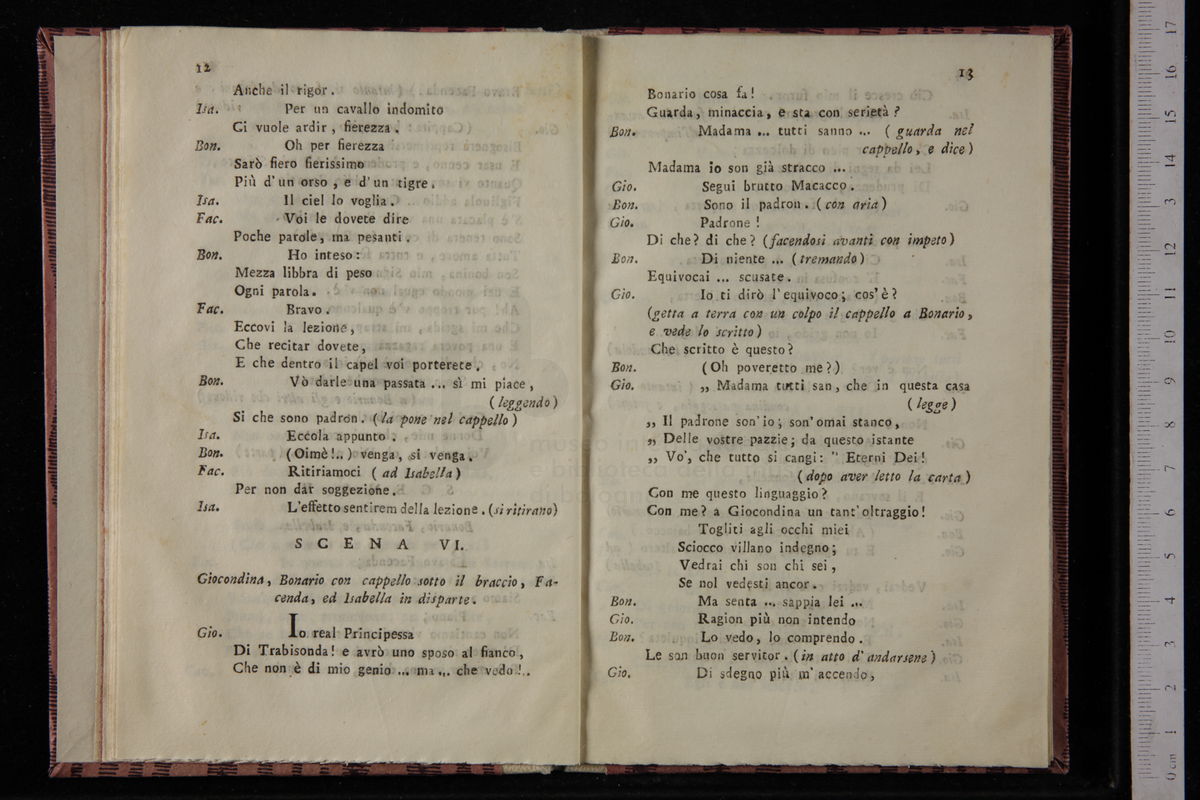 12
Anche il rigor.
Isa. Per un cavallo indomito
Ci vuole ardir, fierezza.
Bon. Oh per fierezza
Sarò fiero fierissimo
Più d'un orso, e d'un tigre.
Isa. Il ciel lo voglia.
Fac. Voi le dovete dire
Poche parole, ma pesanti.
Bon. Ho inteso:
Mezza libbra di peso
Ogni parola.
Fac. Bravo.
Eccovi la lezione,
Che recitar dovete,
E che dentro il capel voi porterete.
Bon. Vò darle una passata ... sì mi piace,
(leggendo)
Si che sono padron. (la pone nel cappello)
Isa. Eccola appunto.
Bon. (Oimè!..) venga, si venga.
Fac. Ritiriamoci (ad Isabella)
Per non dar soggezione.
Isa. L'effetto sentirem della lezione. (si ritirano)
SCENA VI.
Giocondina, Bonario con cappello sotto il braccio, Fa-
cenda, ed Isabella in disparte.
Gio. Io real Principessa
Di Trabisonda! e avrò uno sposo al fianco,
Che non è di mio genio ... ma ... che vedo!..
13
Bonario cosa fa!
Guarda, minaccia, e sta con serietà?
Bon. Madama ... tutti sanno ... (guarda nel
cappello, e dice)
Madama io son già stracco ...
Gio. Segui brutto Macacco.
Bon. Sono il padron. (con aria)
Gio. Padrone!
Di che? di che? (facendosi avanti con impeto)
Bon. Di niente ... (tremando)
Equivocai ... scusate.
Gio. Io ti dirò l'equivoco; cos'è?
(getta a terra con un colpo il cappello a Bonario,
e vede lo scritto)
Che scritto è questo?
Bon. (Oh poveretto me?)
Gio. „ Madama tutti san, che in questa casa
(legge)
„ Il padrone son'io; son'omai stanco,
„ Delle vostre pazzie; da questo istante
„ Vo', che tutto si cangi: " Eterni Dei!
(dopo aver letto la carta)
Con me questo linguaggio?
Con me? a Giocondina un tant'oltraggio!
Togliti agli occhi miei
Sciocco villano indegno;
Vedrai chi son chi sei,
Se nol vedesti ancor.
Bon. Ma senta ... sappia lei ...
Gio. Ragion più non intendo
Bon. Lo vedo, lo comprendo.
Le son buon servitor. (in atto d'andarsene)
Gio. Di sdegno più m'accendo,